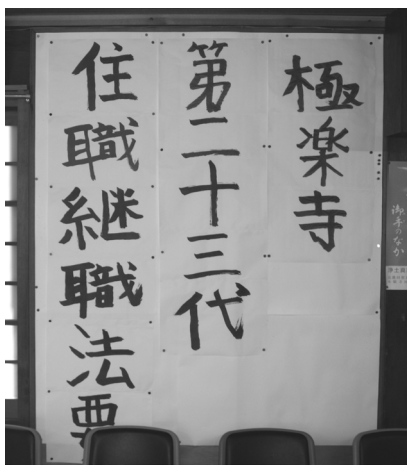 極楽寺
第二十三代
住職継職法要
御手のなか